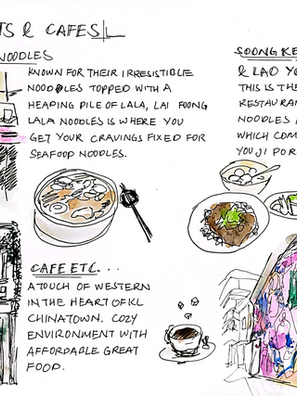 & CAFES
NOODLES
KNOWN FOR THEIR IRRESISTIBLE
NOODLES TOPPED WITH A
HEAPING PILE OF LALA, LAI FOONG
LALA NOODLES IS WHERE YOU
GET YOUR CRAVINGS FIXED FOR
SEAFOOD NOODLES.
CAFE ETC...
A TOUCH OF WESTERN
IN THE HEART OF KL
CHINATOWN. COZY
ENVIRONMENT WITH
AFFORDABLE GREAT
FOOD.
SOONG KE
& LAO YO
THIS IS THE
RESTAURAN
NOODLES
WHICH COM
YOUJI POR